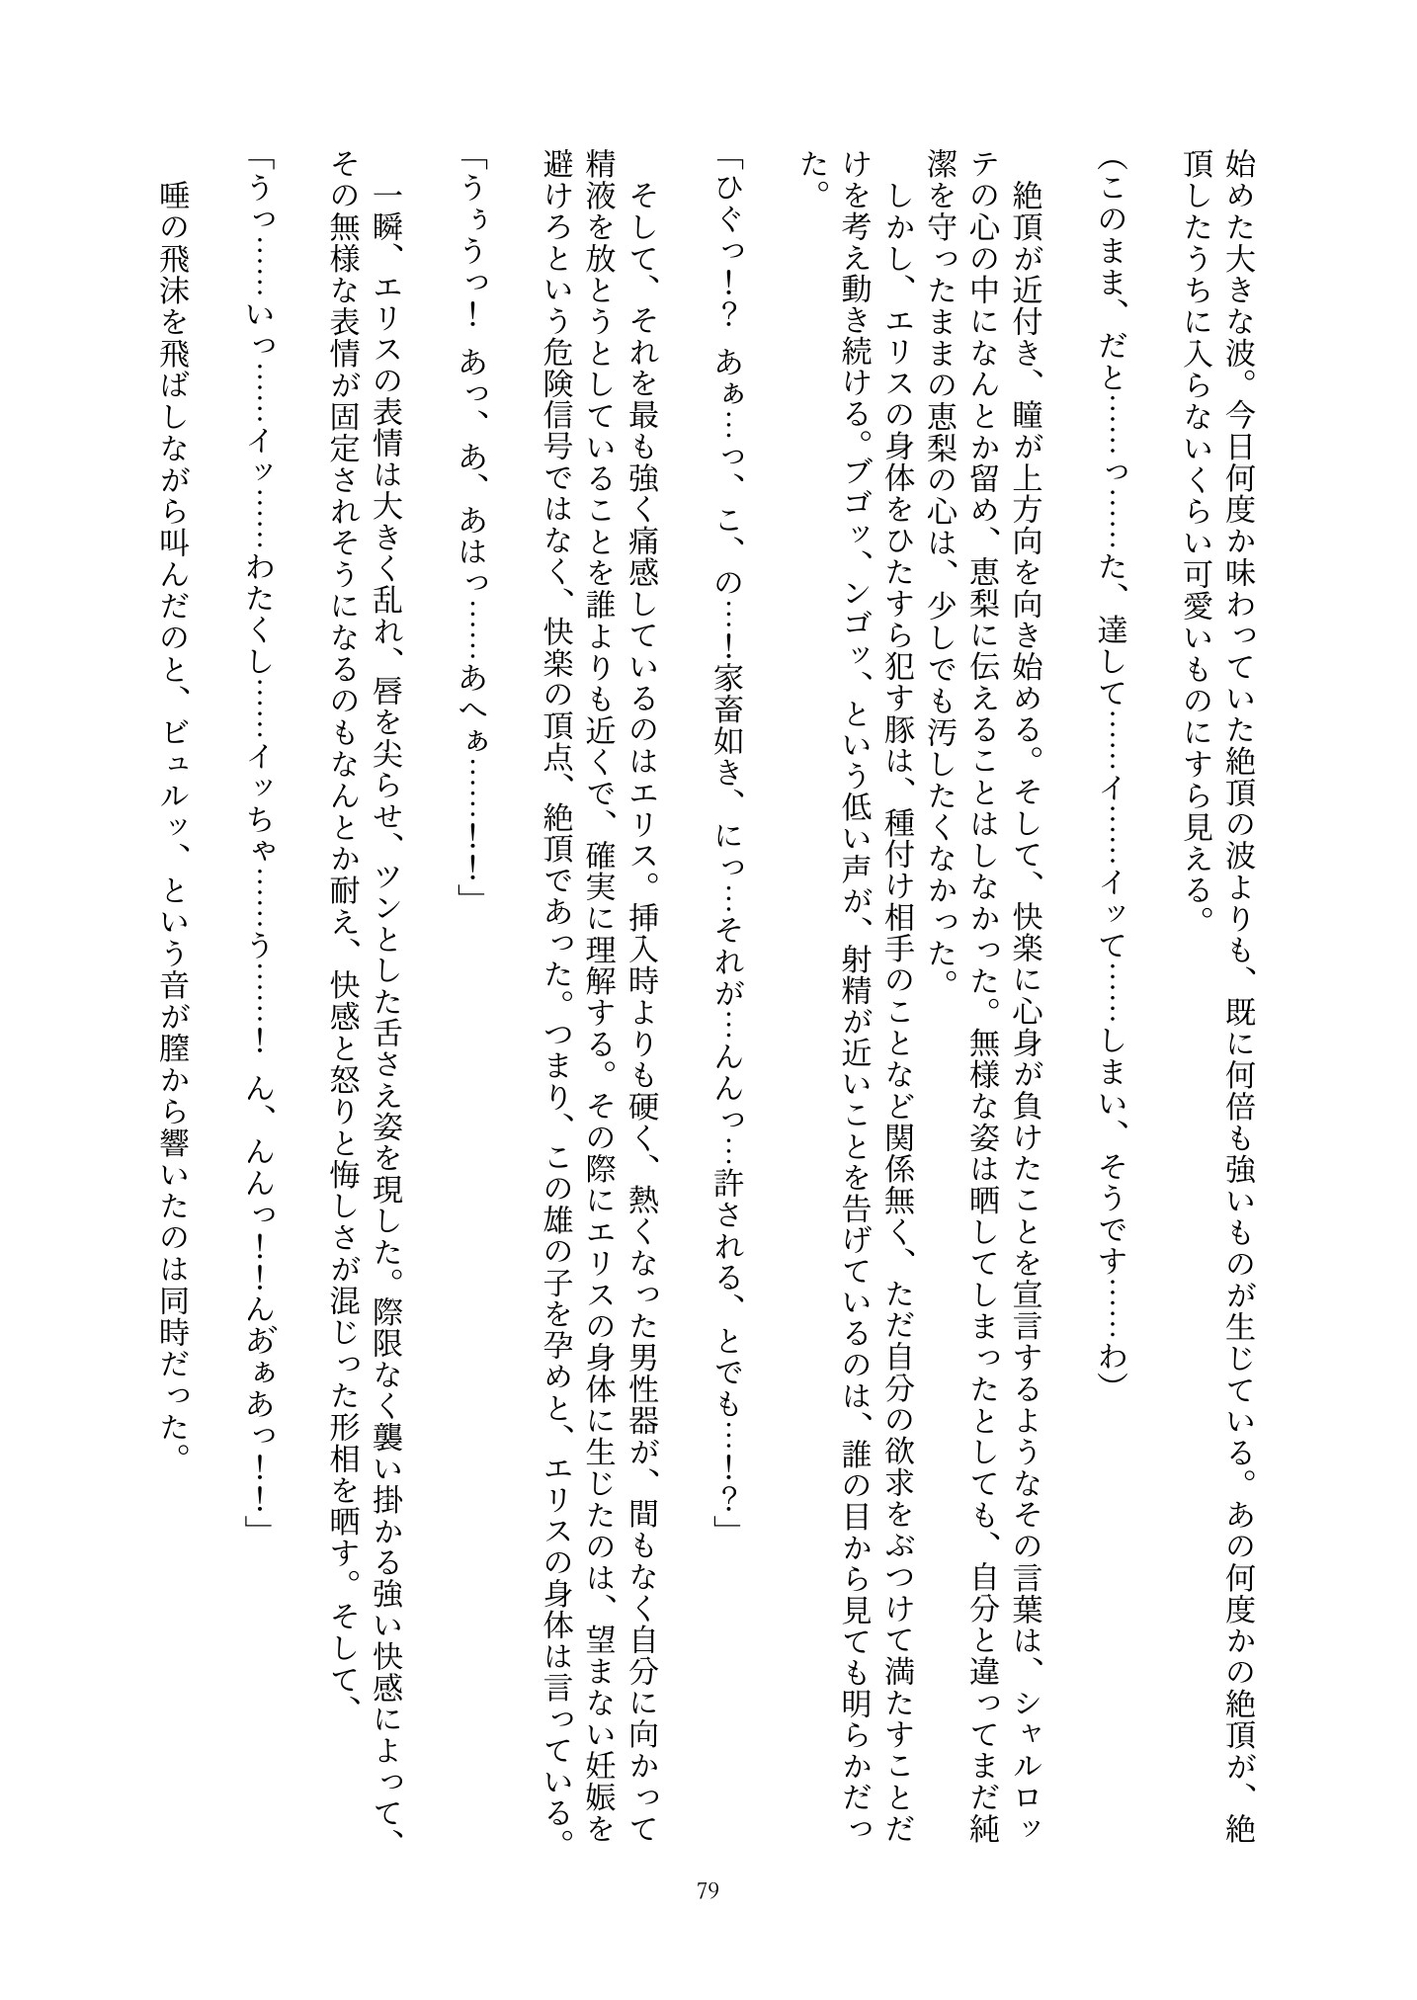 始めた大きな波。今日何度か味わっていた絶頂の波よりも、既に何倍も強いものが生じている。あの何度かの絶頂が、絶
頂したうちに入らないくらい可愛いものにすら見える。
（このまま、だと……っ……た、達して……イ……イッて……しまい、そうです……わ）
絶頂が近付き、瞳が上方向を向き始める。そして、快楽に心身が負けたことを宣言するようなその言葉は、シャルロッ
テの心の中になんとか留め、恵梨に伝えることはしなかった。無様な姿は晒してしまったとしても、自分と違ってまだ純
潔を守ったままの恵梨の心は、少しでも汚したくなかった。
しかし、エリスの身体をひたすら犯す豚は、種付け相手のことなど関係無く、ただ自分の欲求をぶつけて満たすことだ
けを考え動き続ける。ブゴッ、ンゴッ、という低い声が、射精が近いことを告げているのは、誰の目から見ても明らかだっ
た。
「ひぐっ！？ あぁ…っ、こ、の…！家畜如き、にっ…それが…んんっ…許される、とでも…！？」
そして、それを最も強く痛感しているのはエリス。挿入時よりも硬く、熱くなった男性器が、間もなく自分に向かって
精液を放とうとしていることを誰よりも近くで、確実に理解する。その際にエリスの身体に生じたのは、望まない妊娠を
避けろという危険信号ではなく、快楽の頂点、絶頂であった。つまり、この雄の子を孕めと、エリスの身体は言っている。
「うぅうっ！ あっ、あ、あはっ……あへぁ……！！」
一瞬、エリスの表情は大きく乱れ、唇を尖らせ、ツンとした舌さえ姿を現した。際限なく襲い掛かる強い快感によって、
その無様な表情が固定されそうになるのもなんとか耐え、快感と怒りと悔しさが混じった形相を晒す。そして、
「うっ……いっ……イッ……わたくし……イッちゃ……う……！ ん、んんっ！！んあ゛ぁあっ！！」
唾の飛沫を飛ばしながら叫んだのと、ビュルッ、という音が膣から響いたのは同時だった。
79